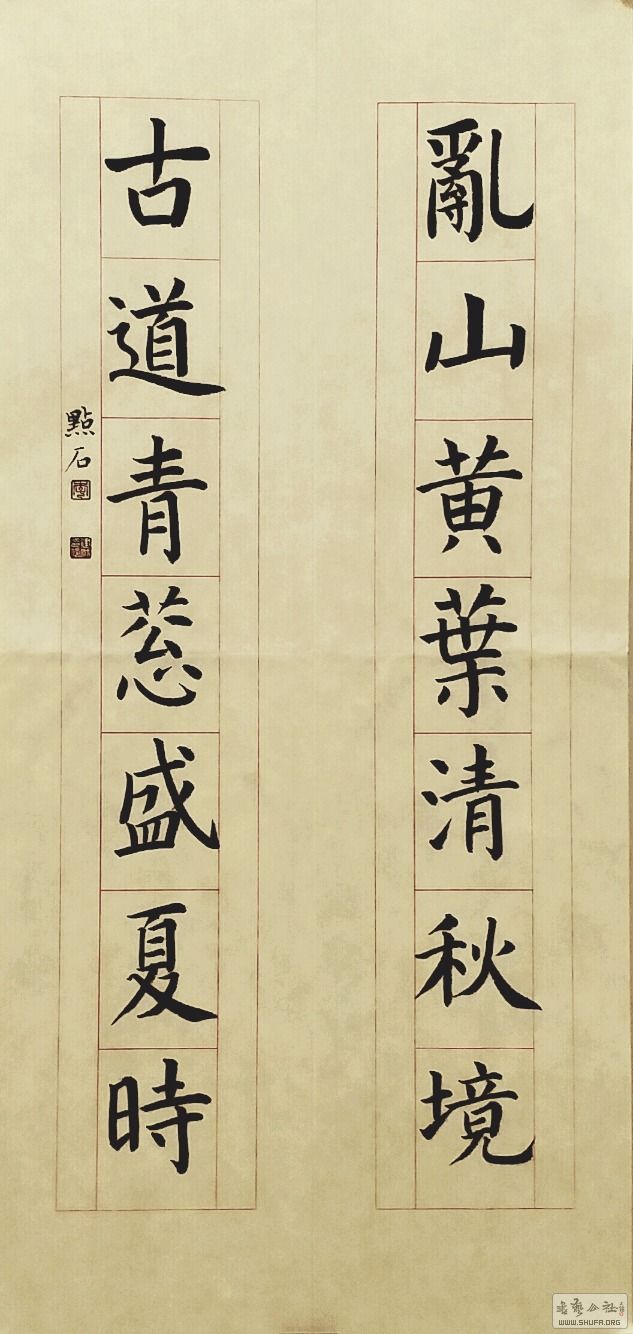 亂山黄葉清秋境
古道青蔥盛夏時
點石
WWW.SHUFA.ORG